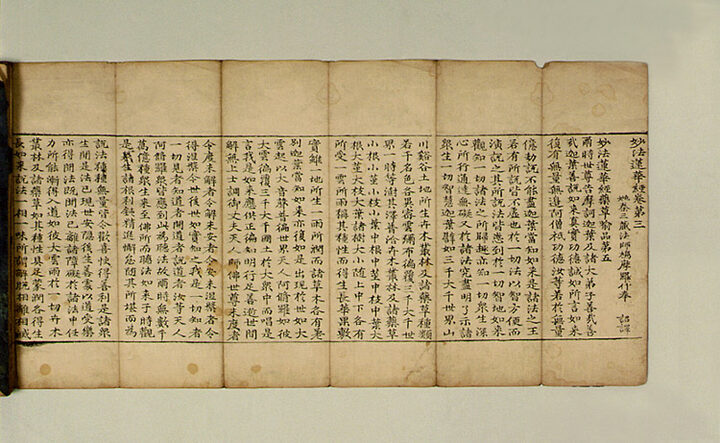 妙法蓮華經卷第三
姚秦三藏法師鳩摩羅什奉 詔譯
妙法蓮華經藥草喻品第五
爾時世尊告摩訶迦葉及諸大弟子善哉善
哉迦葉善說如來真實功德誠如所言如來
復有無量無邊阿僧祇功德汝等若於無量
億劫說不能盡迦葉當知如來是諸法之王
若有所說皆不虛也於一切法以智方便而
演說之其所說法皆悉到於一切智地如來
觀知一切諸法之所歸趣亦知一切眾生深
心所行通達無礙又於諸法究盡明了示諸
眾生一切智慧迦葉譬如三千大千世界山
川谿谷土地所生卉木叢林及諸藥草種類
若干名色各異密雲彌布遍覆三千大千世
界一時等澍其澤普洽卉木叢林及諸藥草
小根小莖小枝小葉中根中莖中枝中葉大
根大莖大枝大葉諸樹大小隨上中下各有
所受一雲所雨稱其種性而得生長華菓敷
實雖一地所生一雨所潤而諸草木各有差
別迦葉當知如來亦復如是出現於世如大
雲起以大音聲普遍世界天人阿脩羅如彼
大雲遍覆三千大千國土於大眾中而唱是
言我是如來應供正遍知明行足善逝世間
解無上士調御丈夫天人師佛世尊未度者
令度未解者令解未安者令安未涅槃者令
得涅槃今世後世如實知之我是一切知者
一切見者知道者開道者說道者汝等天人
阿脩羅眾皆應到此為聽法故爾時無數千
萬億種眾生來至佛所而聽法如來于時觀
是眾生諸根利鈍精進懈怠隨其所堪而為
說法種種無量皆令歡喜快得善利是諸眾
生聞是法已現世安隱後生善處以道受樂
亦得聞法既聞法已離諸障礙於諸法中任
力所能漸得入道如彼大雲雨於一切卉木
叢林及諸藥草如其種性具足蒙潤各得生
長如來說法一相一味所謂解脫相離相滅